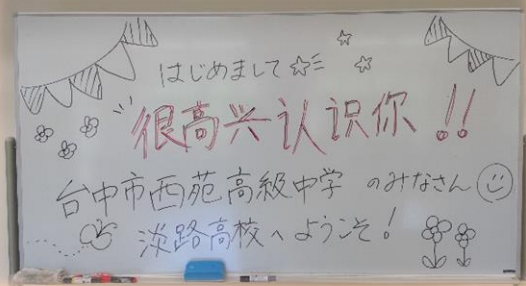 はじめまして
很高兴认识你!!
台中市西苑高級中学 のみなさん
淡路高校へようこそ!